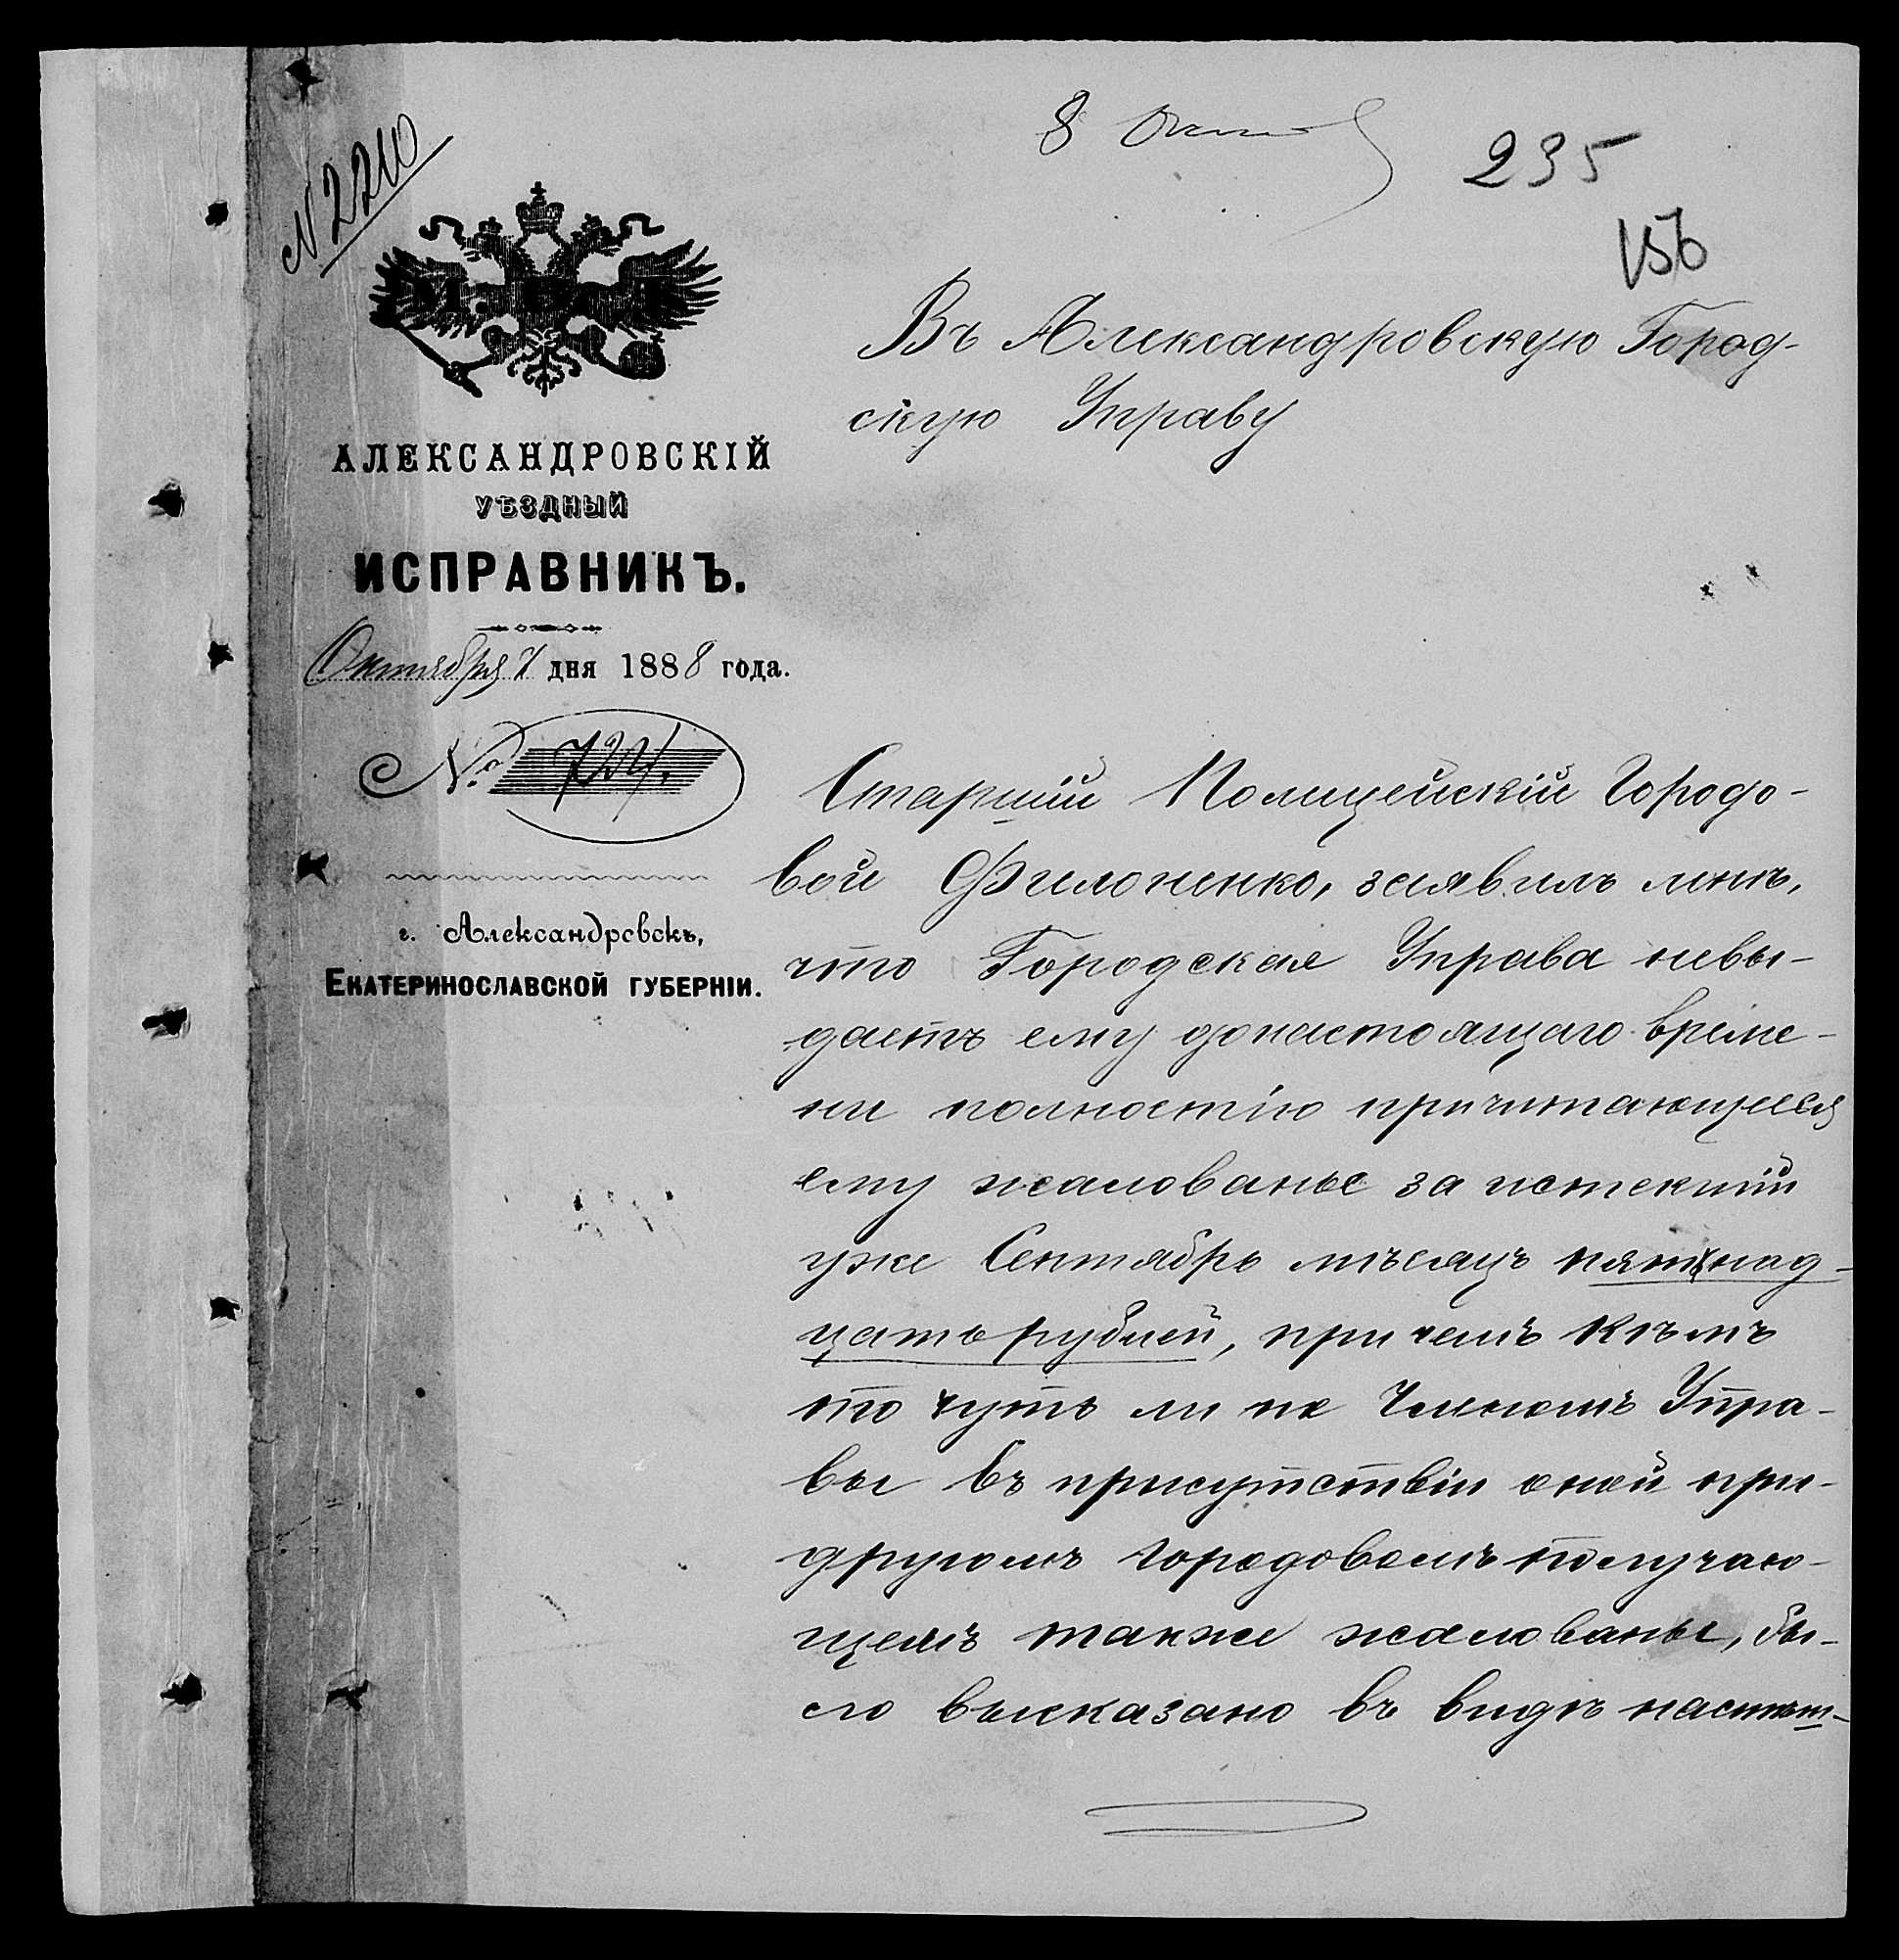 8 Октяб
235
156
№ 2210
Въ Александровскую Город-
скую Управу
АЛЕКСАНДРОВСКІЙ
УѢЗДНЫЙ
ИСПРАВНИКЪ.
Октября 7 дня 1888 года.
№ 724.
г. Александровскъ,
ЕКАТЕРИНОСЛАВСКОЙ ГУБЕРНІИ.
Старшій Полицейскій Городо-
вой Филоненко, заявилъ мнѣ,
что Городская Управа невы-
даетъ ему донастоящаго време-
ни полностію причитающееся
ему жалованье за истекшій
уже Сентябрь мѣсяцъ пятнад-
цать рублей, при чемъ кѣмъ
то чуть ли не Членомъ Упра-
вы въ присутствіи оной при-
другомъ городовомъ получаю-
щемъ также жалованье, бы-
ло высказано въ видѣ насмѣш-